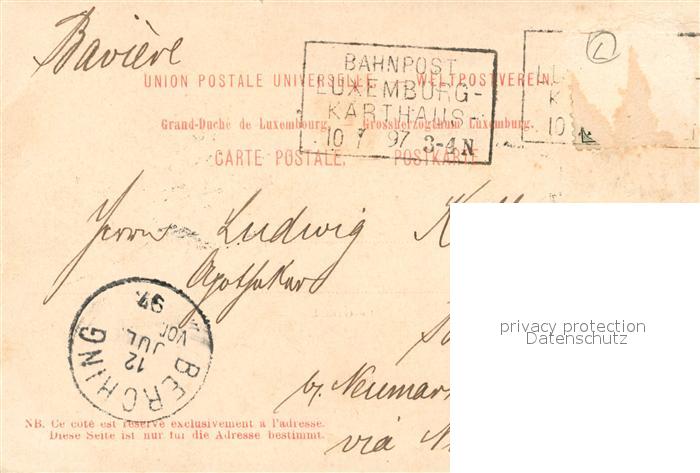 Bavière
UNION POSTALE UNIVERSELLE. WELTPOSTVEREIN.
BAHNPOST
LUXEMBURG-
KARTHAUS-
10 7 97 3-4 N
Grand-Duché de Luxembourg. Grossherzogthum Luxemburg.
CARTE POSTALE. POSTKARTE
Herrn Ludwig
Apotheker
BERCHING
12
JUL.
VOR
97.
b/ Neumar
via N
privacy protection
Datenschutz
NB. Ce côté est réservé exclusivement à l'adresse.
Diese Seite ist nur für die Adresse bestimmt.